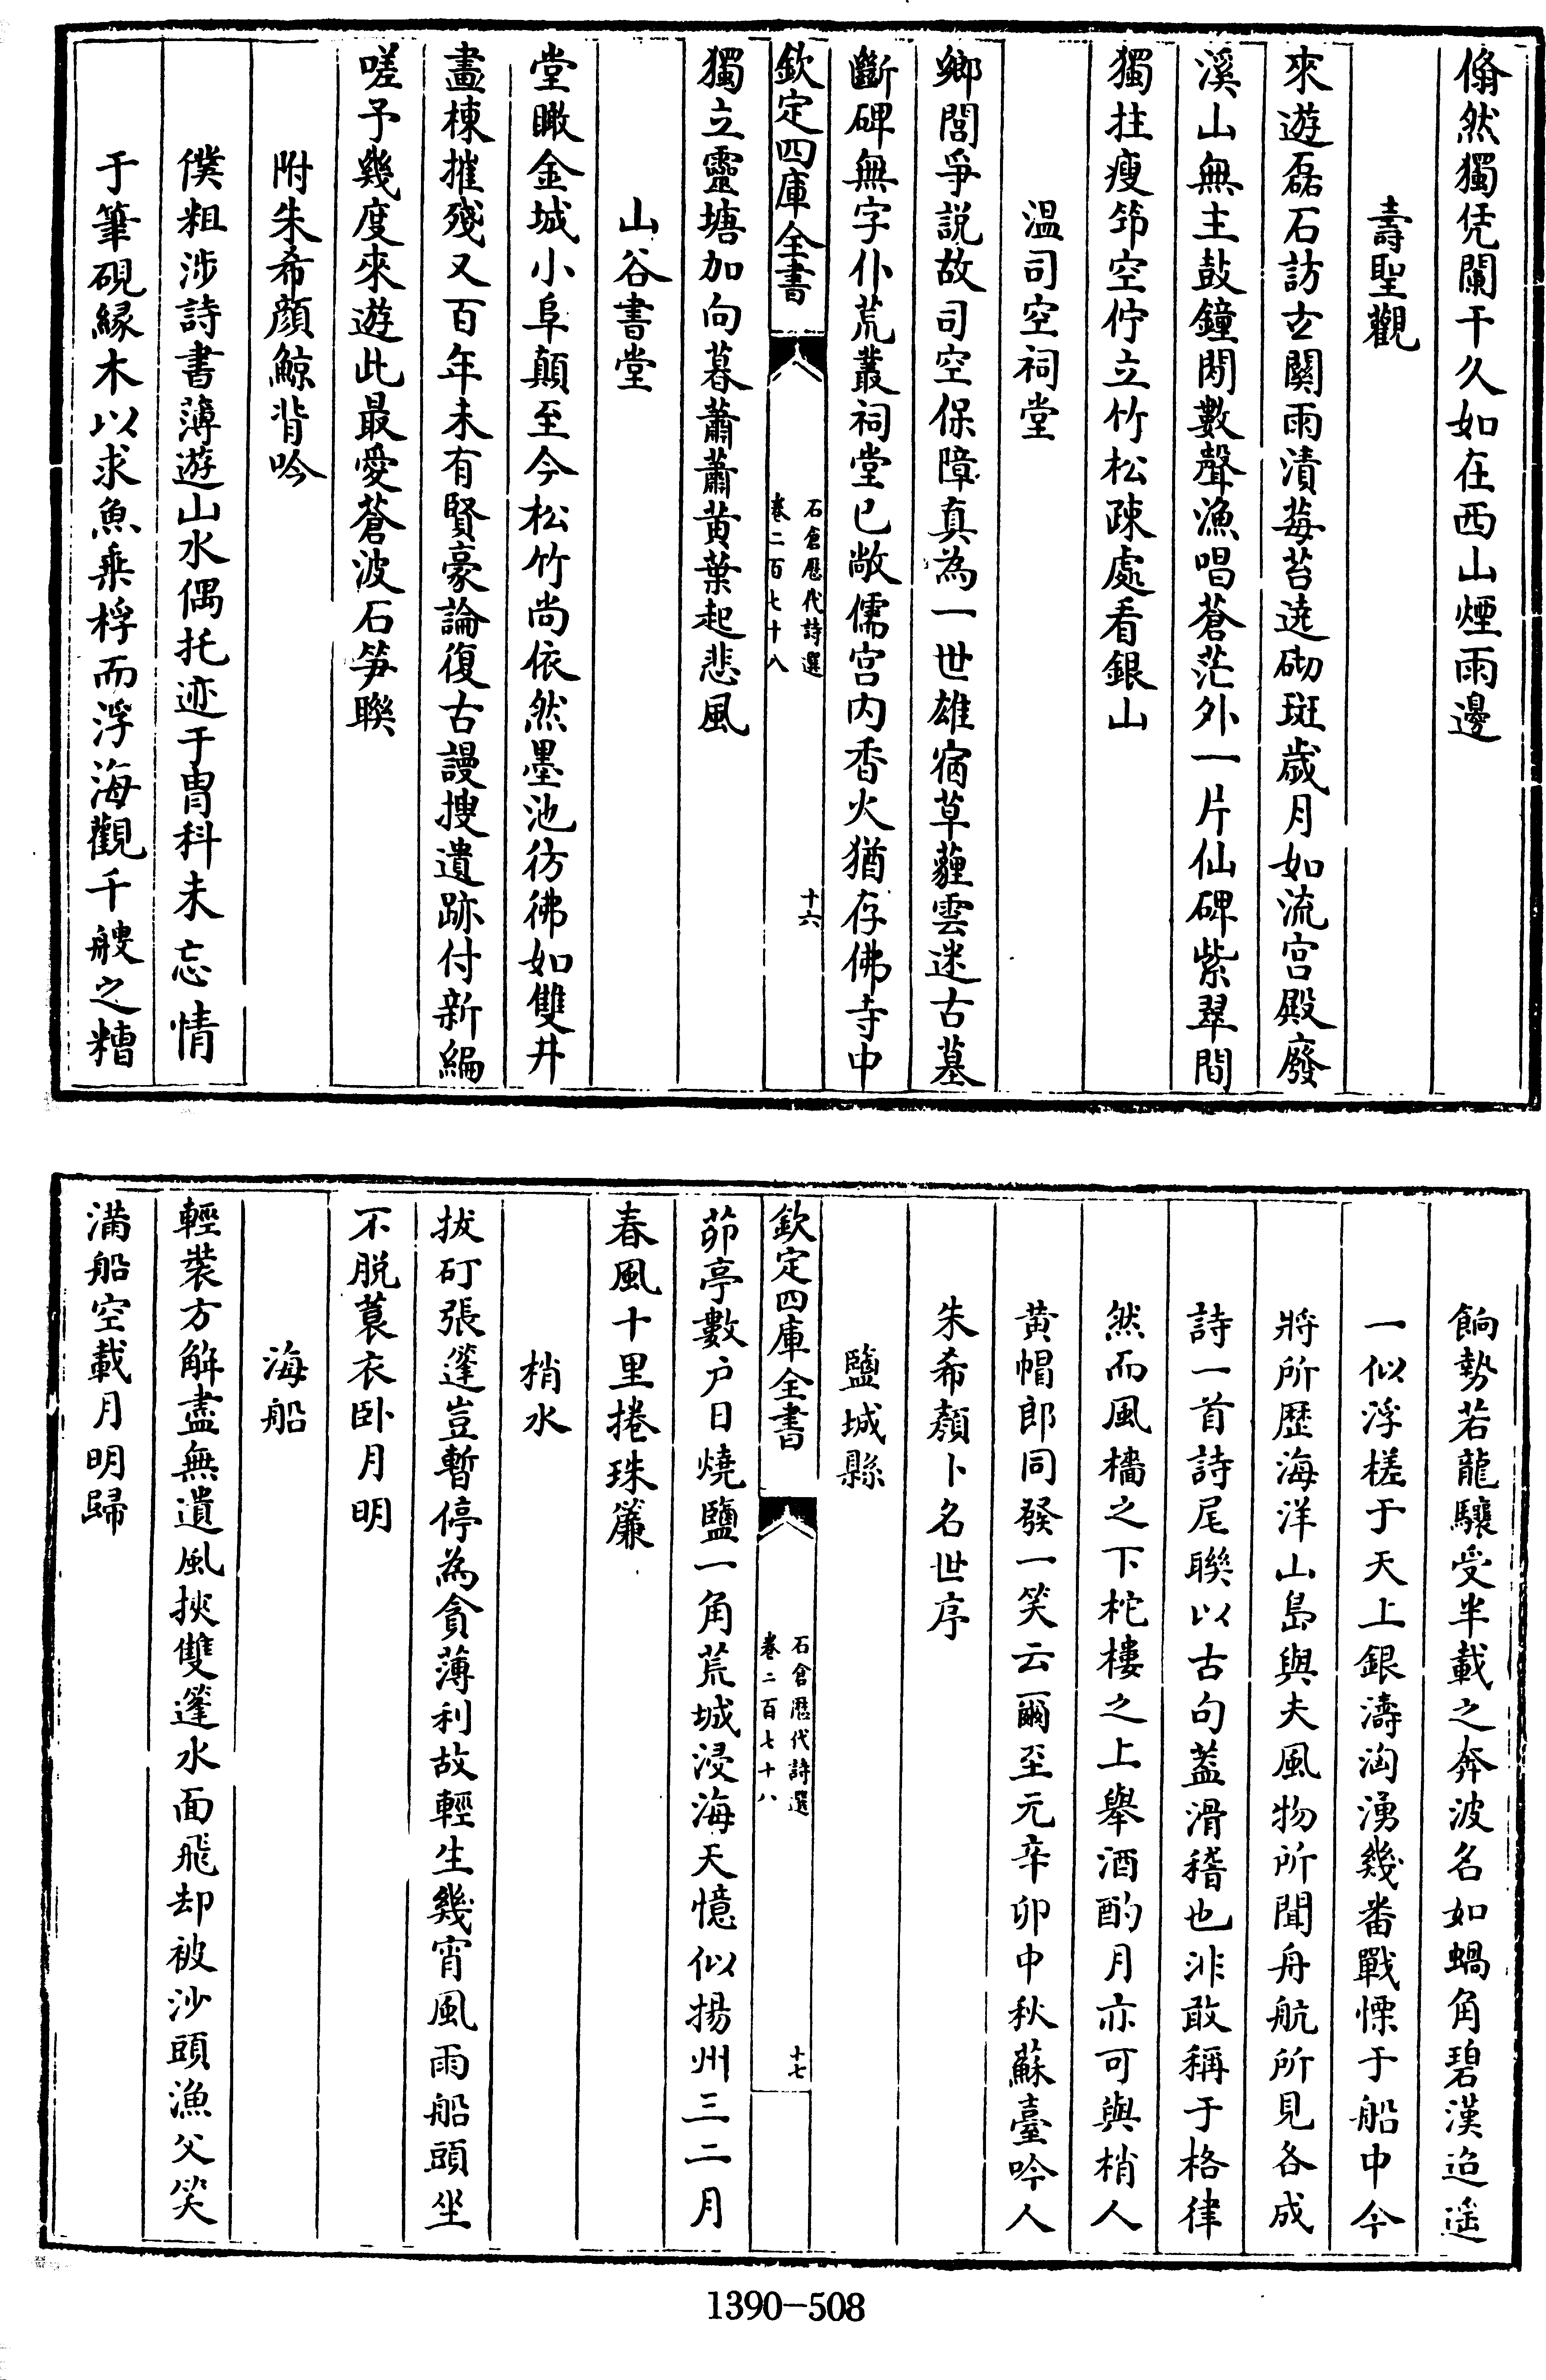 翛然獨凭闌干久如在西山煙雨邊
壽聖觀
來遊磊石訪玄關雨漬莓苔遶砌斑歲月如流宮殿廢
溪山無主鼓鐘閒數聲漁唱蒼茫外一片仙碑紫翠間
獨拄瘦筇空佇立竹松疎處看銀山
温司空祠堂
鄉閭爭説故司空保障真為一世雄宿草蘿雲迷古墓
斷碑無字仆荒叢祠堂已敞儒宫内香火猶存佛寺中
欽定四庫全書
石倉歷代詩選
卷二百七十八
十六
獨立靈塘加向暮蕭蕭黄葉起悲風
山谷書堂
堂瞰金城小阜顛至今松竹尚依然墨池彷彿如雙井
畫棟摧殘又百年未有賢豪論復古謾搜遺跡付新編
嗟予幾度來遊此最愛蒼波石笋聯
附朱希顔鯨背吟
僕粗涉詩書薄遊山水偶托迹于胄科未忘情
于筆硯緣木以求魚乘桴而浮海觀千艘之糟
餉勢若龍驤受半載之奔波名如蝸角碧漢迢遥
一似浮槎于天上銀濤洶湧幾番戰慄于船中今
將所歷海洋山島與夫風物所聞舟航所見各成
詩一首詩尾聯以古句葢滑稽也非敢稱于格律
然而風檣之下柁樓之上舉酒酌月亦可與梢人
黄帽郎同發一笑云爾至元辛卯中秋蘇臺吟人
朱希顔卜名世序
鹽城縣
欽定四庫全書
石倉歷代詩選
卷二百七十八
十七
茆亭數户日燒鹽一角荒城浸海天憶似揚州三二月
春風十里捲珠簾
梢水
拔矴張篷豈暫停為貪薄利故輕生幾宵風雨船頭坐
不脱蓑衣卧月明
海船
輕裝方解盡無遺風挾雙篷水面飛却被沙頭漁父笑
滿船空載月明歸
1390-508